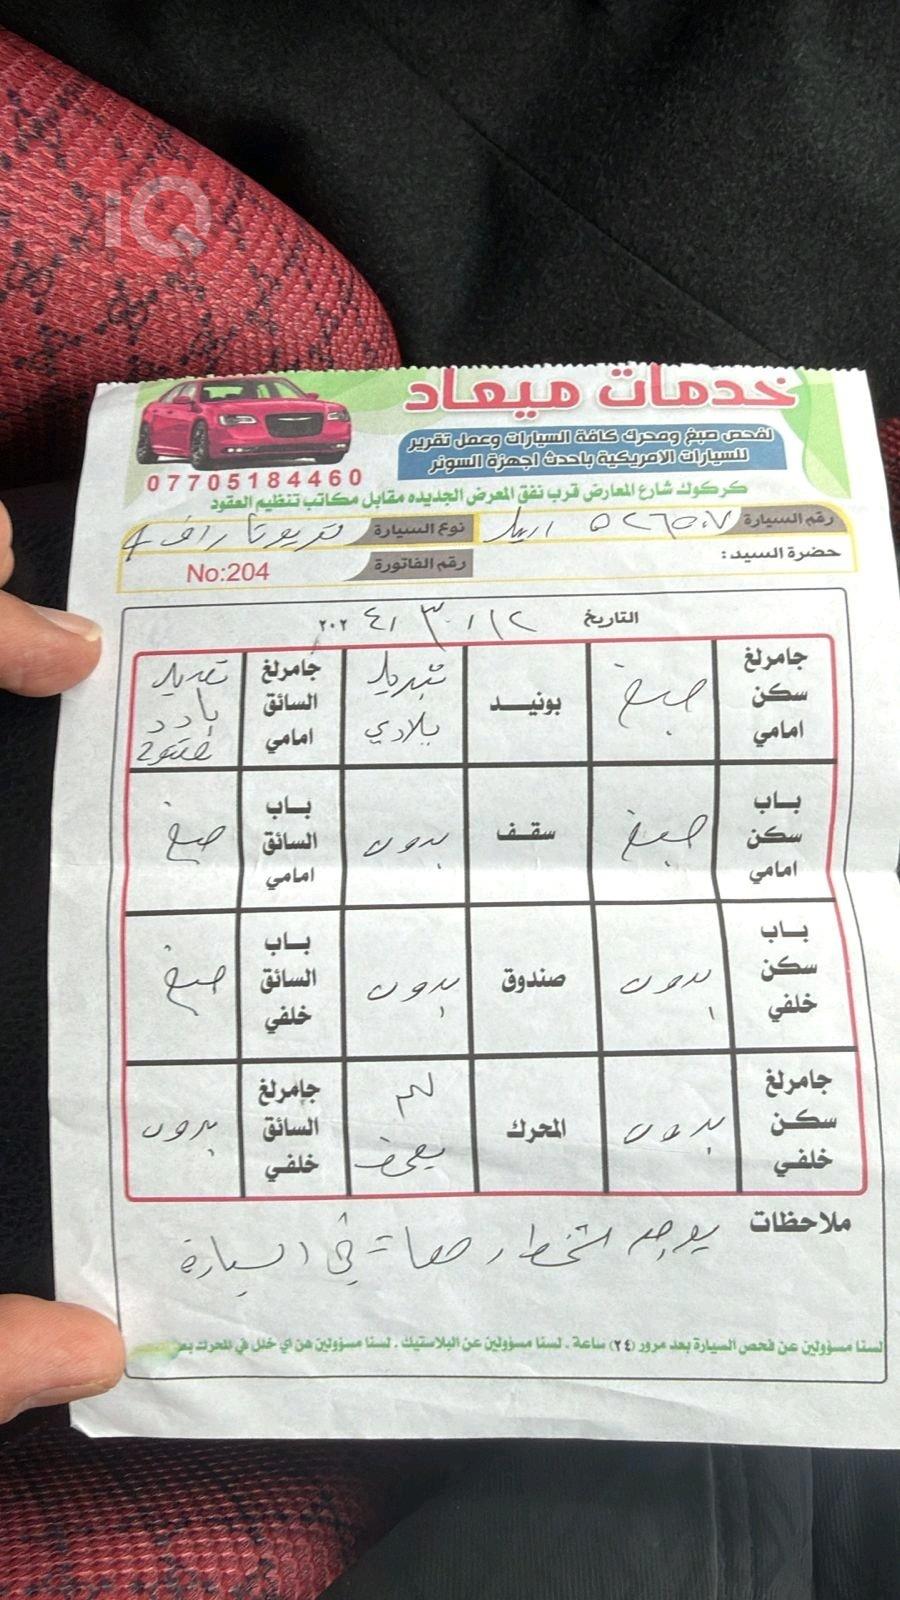 iQ
خدمات ميعاد
لفحص صبغ ومحرك كافة السيارات وعمل تقرير
للسيارات الامريكية باحدث اجهزة السونر
07705184460
كركوك شارع المعارض قرب نفق المعرض الجديده مقابل مكاتب تنظيم العقود
رقم السيارة اربيل نوع السيارة راف 4
حضرة السيد: رقم الفاتورة No:204
التاريخ ١٢ / ٣ / ٢٠٢٤
جامرلغ سكن امامي صبغ بونيد تبديل بلادي جامرلغ السائق امامي
باب سكن امامي صبغ سقف بدون باب السائق امامي صبغ
باب سكن خلفي بدون صندوق بدون باب السائق خلفي صبغ
جامرلغ سكن خلفي بدون المحرك لم يفحص جامرلغ السائق خلفي بدون
ملاحظات يوجد في السيارة
لسنا مسؤولين عن فحص السيارة بعد مرور (٢٤) ساعة . لسنا مسؤولين عن البلاستيك . لسنا مسؤولين هن اي خلل في المحرك